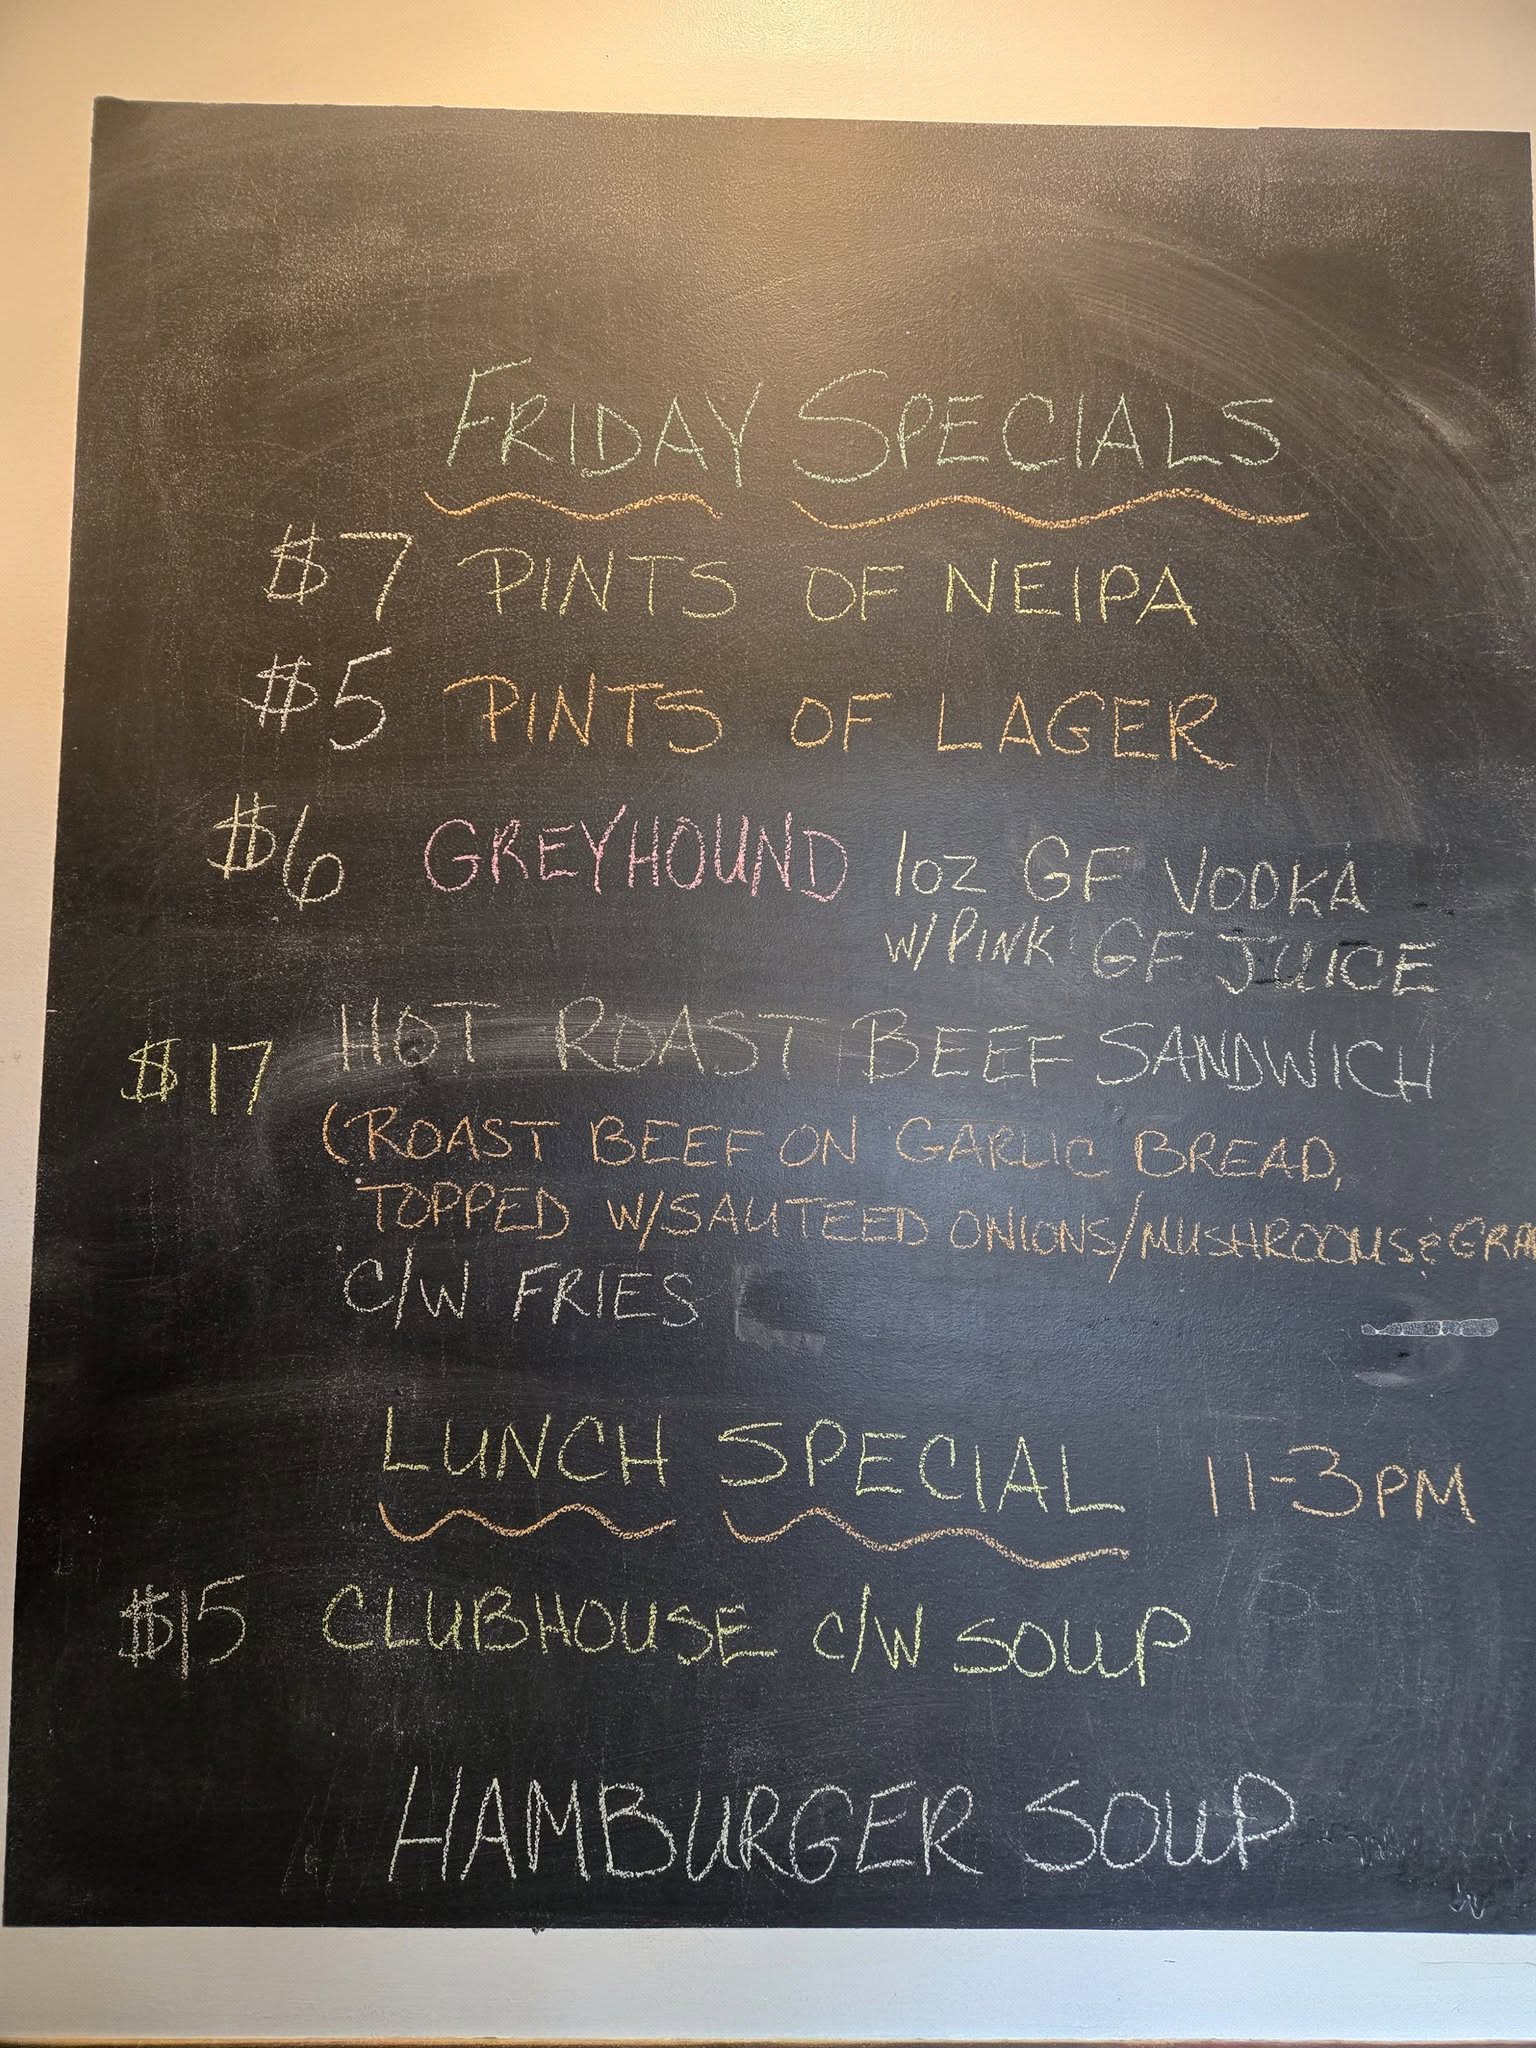 FRIDAY SPECIALS
$7 PINTS OF NEIPA
$5 PINTS OF LAGER
$6 GREYHOUND 1oz GF VODKA
W/PINK GF JUICE
$17 HOT ROAST BEEF SANDWICH
(ROAST BEEF ON GARLIC BREAD,
TOPPED W/SAUTEED ONIONS/MUSHROOMS & GRA
C/W FRIES
LUNCH SPECIAL 11-3PM
$15 CLUBHOUSE C/W SOUP
HAMBURGER SOUP